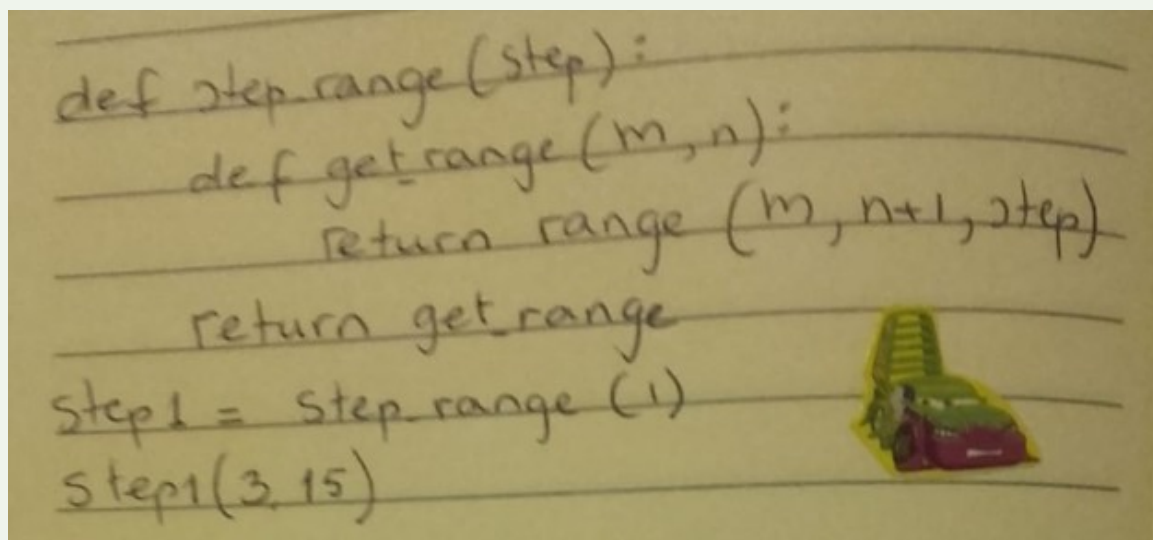 def step_range(step):
def get_range(m, n):
return range (m, n+1, step)
return get_range
step1 = step_range (1)
step1(3, 15)